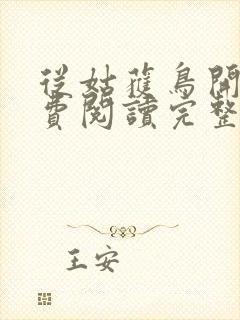 從姑蘿鳥開
費閱讀完整
王安